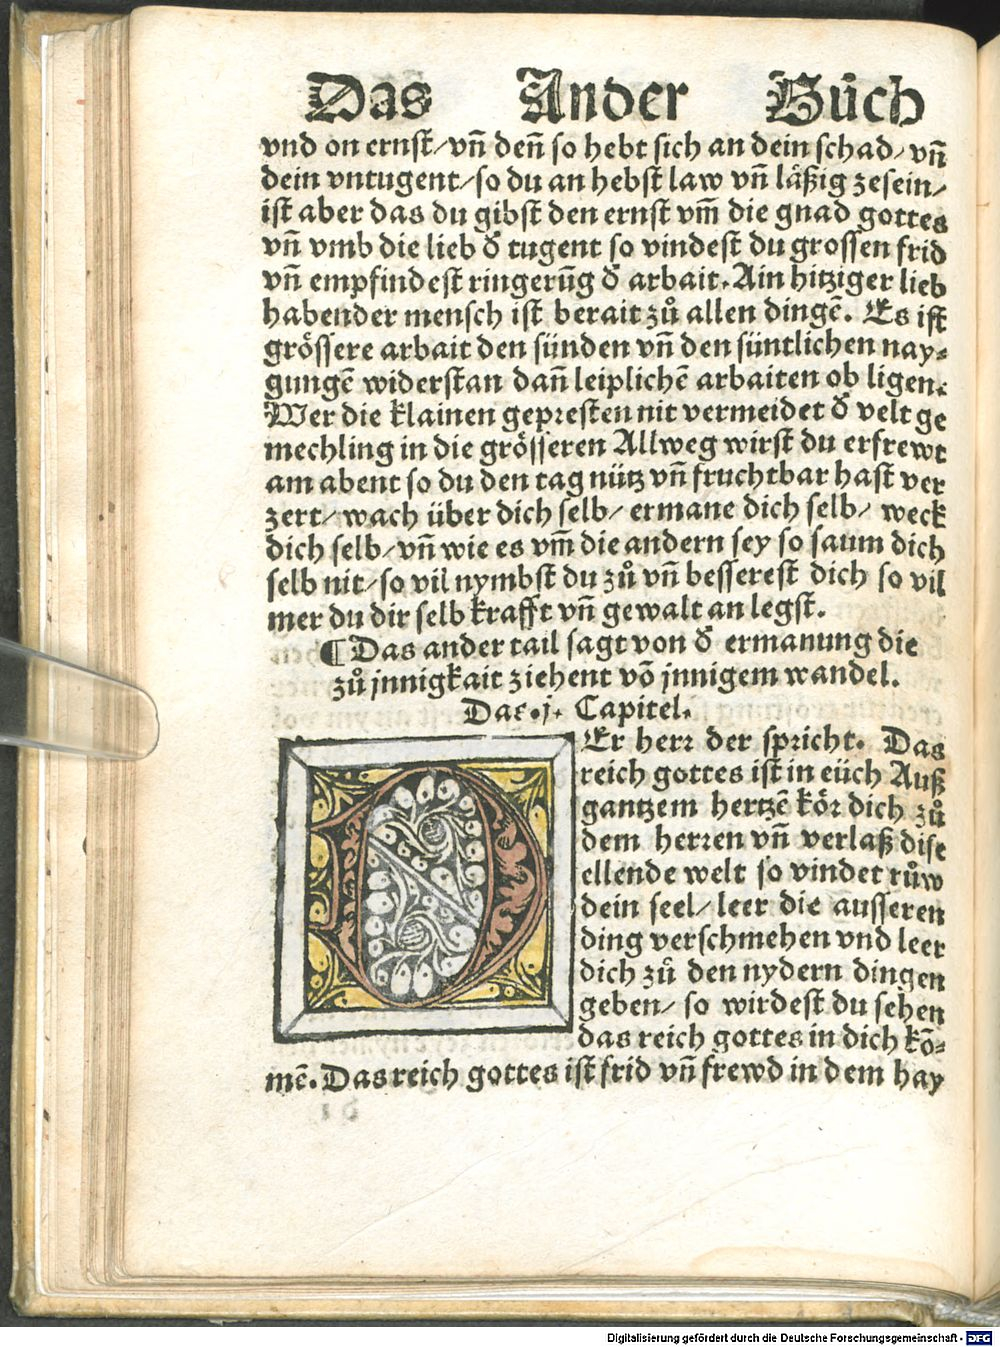 Das Ander Bůch
vnd on ernst/vñ deñ so hebt sich an dein schad/vñ
dein vntugent/so du an hebst law vñ läßig zesein/
ist aber das du gibst den ernst vm̃ die gnad gottes
vñ vmb die lieb đ tugent so vindest du grossen frid
vñ empfindest ringerũg đ arbait. Ain hitziger lieb
habender mensch ist berait zů allen dingẽ. Es ist
grössere arbait den sünden vñ den süntlichen nay⸗
gungẽ widerstan dañ leiplichẽ arbaiten ob ligen.
Wer die klainen gepresten nit vermeidet đ velt ge
mechling in die grösseren Allweg wirst du erfrewt
am abent so du den tag nütz vñ fruchtbar hast ver
zert/ wach über dich selb/ ermane dich selb/ weck
dich selb/vñ wie es vm̃ die andern sey so saum dich
selb nit/so vil nymbst du zů vñ besserest dich so vil
mer du dir selb krafft vñ gewalt an legst.
¶Das ander tail sagt von đ ermanung die
zů jnnigkait ziehent võ jnnigem wandel.
Das .j. Capitel.
DEr herr der spricht. Das
reich gottes ist in eüch Auß
gantzem hertzẽ kör dich zů
dem herren vñ verlaß dise
ellende welt so vindet růw
dein seel/ leer die ausseren
ding verschmehen vnd leer
dich zů den nydern dingen
geben/ so wirdest du sehen
das reich gottes in dich kõ⸗
mẽ. Das reich gottes ist frid vñ frewd in dem hay
Digitalisierung gefördert durch die Deutsche Forschungsgemeinschaft - DFG